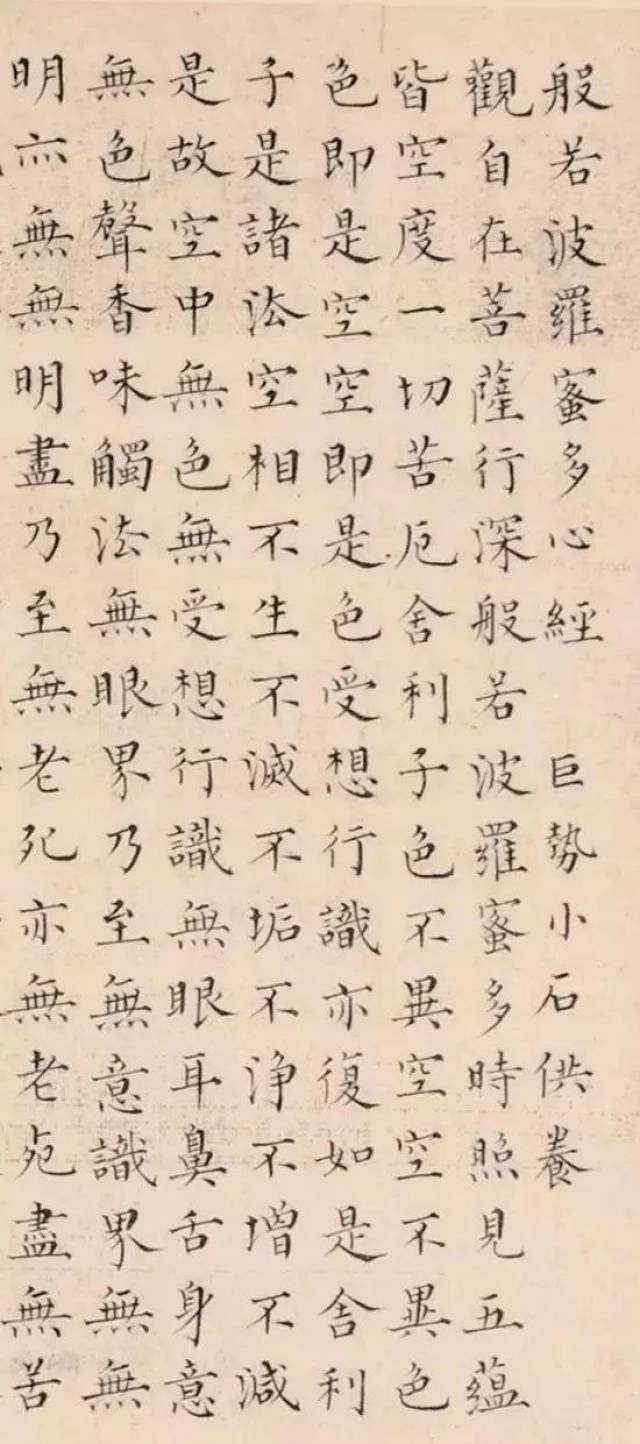 般若波羅蜜多心經 巨勢小石供養
觀自在菩薩行深般若波羅蜜多時照見五蘊
皆空度一切苦厄舍利子色不異空空不異色
色即是空空即是色受想行識亦復如是舍利
子是諸法空相不生不滅不垢不浄不增不減
是故空中無色無受想行識無眼耳鼻舌身意
無色聲香味觸法無眼界乃至無意識界無無
明亦無無明盡乃至無老死亦無老死盡無苦